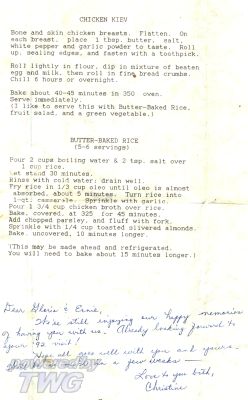 CHICKEN KIEV
Bone and skin chicken breasts. Flatten. On
each breast, place 1 tbsp. butter, salt,
white pepper and garlic powder to taste. Roll
up, sealing edges, and fasten with a toothpick.
Roll lightly in flour, dip in mixture of beaten
egg and milk, then roll in fine bread crumbs.
Chill 6 hours or overnight.
Bake about 40-45 minutes in 350 oven.
Serve immediately.
(I like to serve this with Butter-Baked Rice,
fruit salad, and a green vegetable.)
BUTTER-BAKED RICE
(5-6 servings)
Pour 2 cups boiling water & 2 tsp. salt over
1 cup rice.
Let stand 30 minutes.
Rinse with cold water; drain well.
Fry rice in 1/3 cup oleo until oleo is almost
absorbed, about 5 minutes. Turn rice into
1-qt. casserole. Sprinkle with garlic.
Pour 1 3/4 cup chicken broth over rice.
Bake, covered, at 325 for 45 minutes.
Add chopped parsley, and fluff with fork.
Sprinkle with 1/4 cup toasted slivered almonds.
Bake, uncovered, 10 minutes longer.
(This may be made ahead and refrigerated.
You will need to bake about 15 minutes longer.)
Dear Gloria & Ernie,
We're still enjoying our happy memories
of having you with us. Already looking forward to
your visit!
Hope all goes well with you and yours.
a few weeks
Love to you both,
Christine
TWG